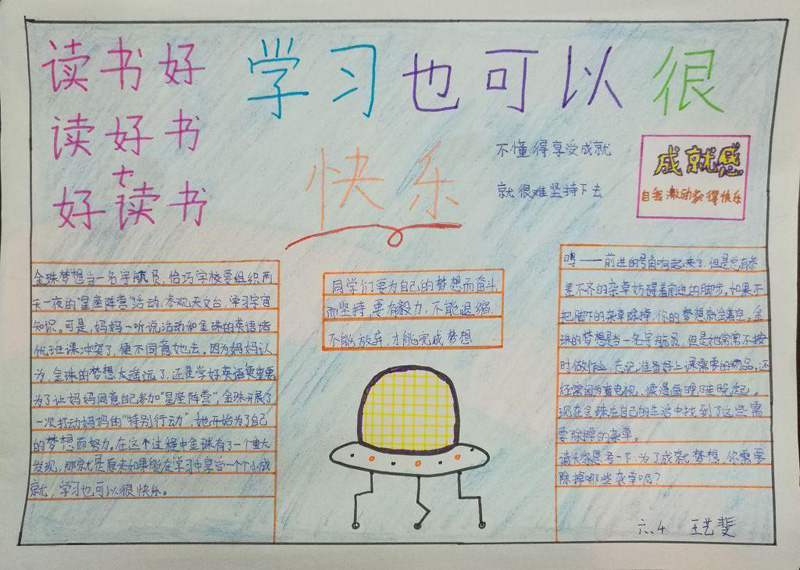 读书好
读好书
好读书
学习也可以很
快乐
不懂得享受成就
就很难坚持下去
成就感
自我激励获得快乐
金珠梦想当一名宇航员,恰巧学校要组织两
天一夜的"星座阵营"活动,参观天文台,学习宇宙
知识。可是,妈妈一听说活动和金珠的英语培
优班课冲突了,便不同意她去。因为妈妈认
为,金珠的梦想太遥远了,还是学好英语更重要。
为了让妈妈同意自己参加"星座阵营",金珠开展了
一次打动妈妈的"特别行动",她开始为了自己
的梦想而努力,在这个过程中金珠有了一个重大
发现,那就是原来如果能在学习中享受一个个小成
就,学习也可以很快乐。
同学们要为自己的梦想而奋斗,
而坚持,要有毅力,不能退缩,
不能放弃,才能完成梦想
呜——前进的号角响起来了,但是总有参
差不齐的杂草妨碍着前进的脚步,如果不
把脚下的杂草除掉,你的梦想就会落空。金
珠的梦想是当一名宇航员,但是她常常不按
时做作业,忘记准备好上课需要的物品,还
经常因为看电视、读漫画晚睡晚起。
现在金珠在自己的生活中找到了这些需
要除掉的杂草。
请大家思考一下:为了成就梦想,你需要
除掉哪些杂草呢?
六.4 王艺斐